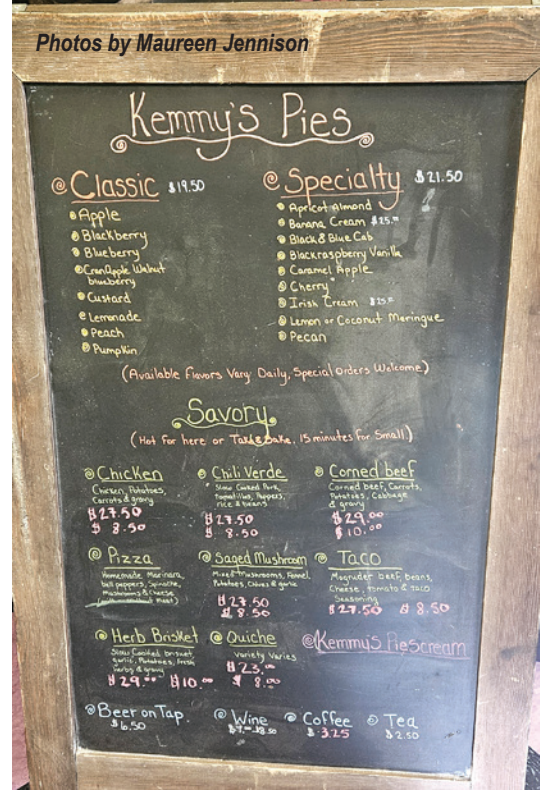 Photos by Maureen Jennison
Kemmy's Pies
Classic $19.50
Apple
Blackberry
Blueberry
CranApple Walnut
blueberry
Custard
Lemonade
Peach
Pumpkin
Specialty $21.50
Apricot Almond
Banana Cream $25.00
Black & Blue Cab
Blackraspberry Vanilla
Caramel Apple
Cherry
Irish Cream $25.00
Lemon or Coconut Meringue
Pecan
(Available flavors Vary Daily, Special Orders Welcome)
Savory
(Hot for here or Take & Bake, 15 minutes for Small)
Chicken
Chicken, Potatoes,
Carrots & gravy
$27.50
$ 8.50
Chili Verde
Slow Cooked Pork,
Tomatillos, Peppers,
rice & beans
$27.50
$ 8.50
Corned beef
Corned beef, Carrots,
Potatoes, Cabbage
& gravy
$29.00
$10.00
Pizza
Homemade Marinara,
bell peppers, Spinache,
Mushrooms & Cheese
Saged Mushroom
Mixed Mushrooms, Fennel,
Potatoes, Chives & garlic
$27.50
$ 8.50
Taco
Magruder beef, beans,
Cheese, tomato & taco
Seasoning
$27.50 $8.50
Herb Brisket
Slow Cooked brisket,
garlic, Potatoes, fresh
herbs & gravy
$29.00 $10.00
Quiche
Variety Varies
$23.00
$ 8.00
Kemmy's Piescream
Beer on Tap
$6.50
Wine
Coffee
$3.25
Tea
$2.50